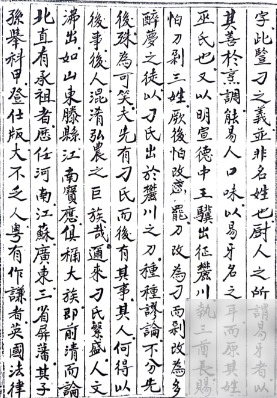 字此暨刁之義並非名姓也廚人之所謂易牙者以
其善於烹調能易人口味以易牙名之耳而原其姓
巫氏也又以明宣德中王驥出征麓川執三酋長賜
怕刀剁三姓厥後怕改為罷刀改為刁剁改為多
醉夢之徒以刁氏出於麓川之刀種種謬論不分先
後殊為可笑夫先有刁氏而後有其事其人何得以
後事後人混淆弘農之巨族哉邇來刁氏繁盛人文
沸出如山東滕縣江南寶應俱稱大族即前清而論
北直有承祖者歷任河南江蘇廣東三省屏藩其子
孫舉科甲登仕版大不乏人粵有作謙者英國法律